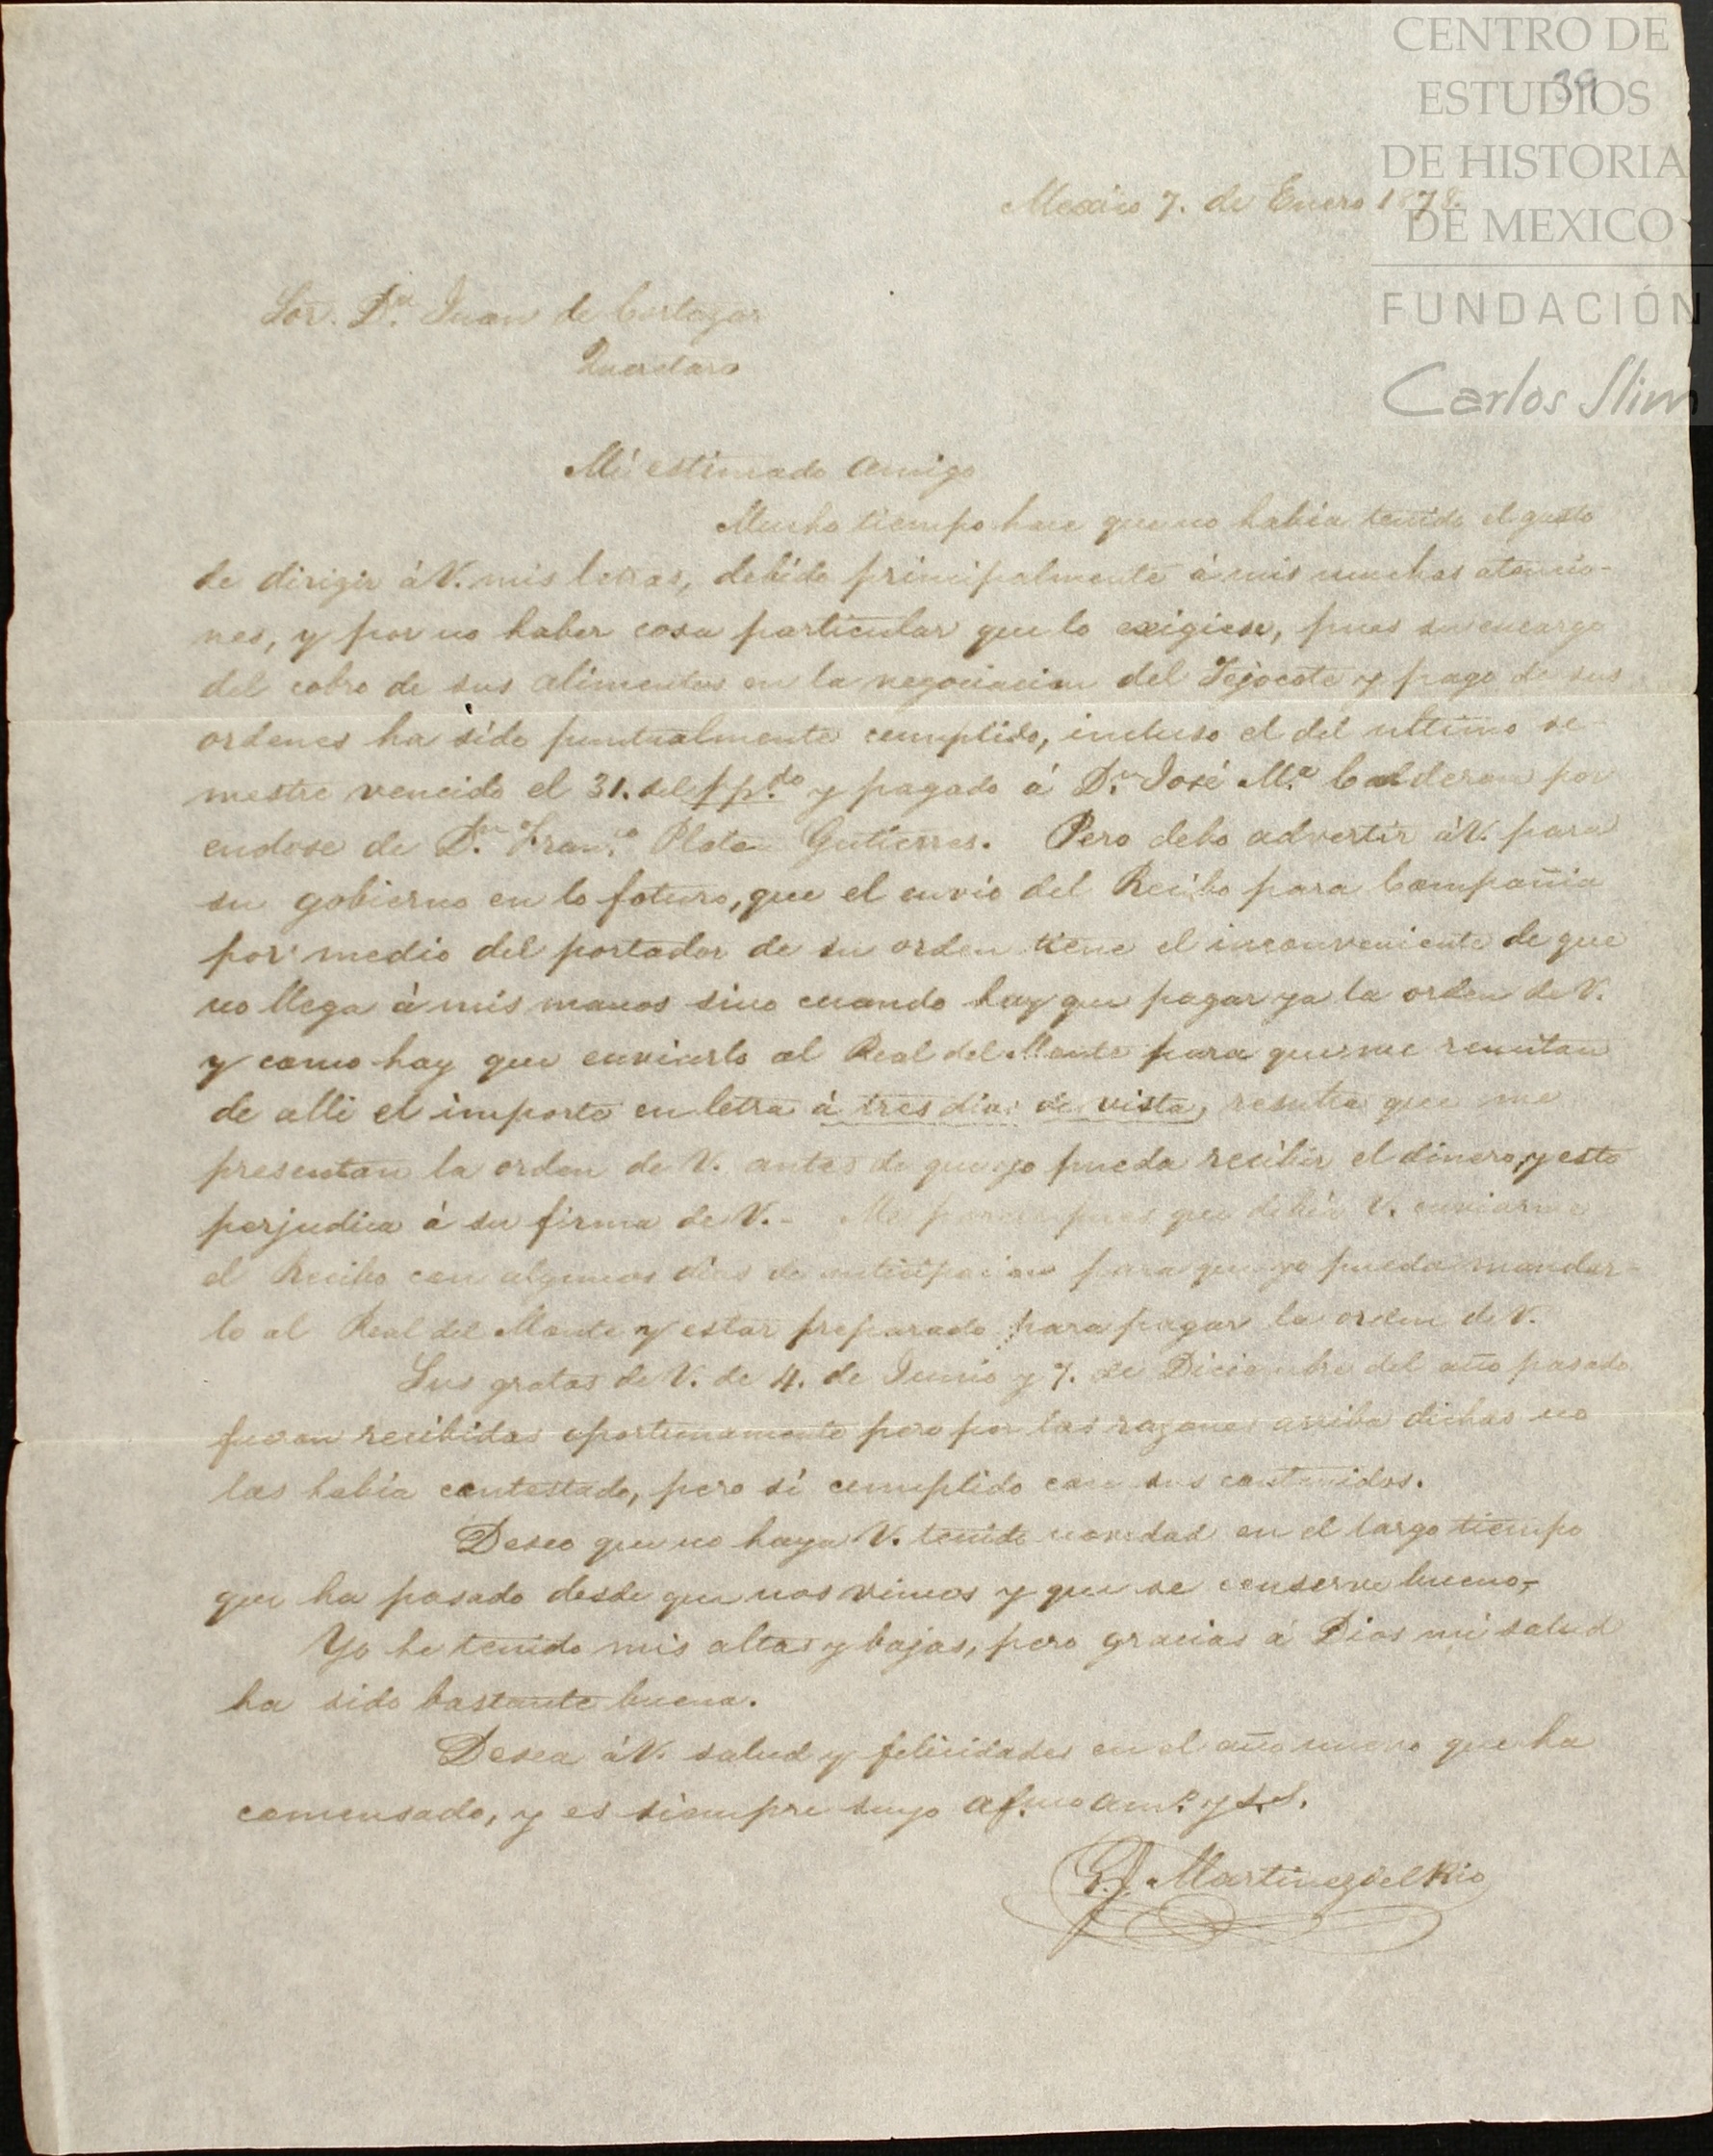 CENTRO DE
ESTUDIOS
DE HISTORIA
DE MEXICO
FUNDACIÓN
Carlos Slim
39
Mexico 7. de Enero 1878.
Sor. Dn. Juan de Cortazar
Queretaro
Mi estimado amigo
Mucho tiempo hace que no habia tenido el gusto
de dirigir á V. mis letras, debido principalmente á mis muchas atencio-
nes, y por no haber cosa particular que lo exigiese, pues su encargo
del cobro de sus alimentos en la negociacion del Tejocote y pago de sus
ordenes ha sido puntualmente cumplido, incluso el del ultimo se-
mestre vencido el 31. del ppdo. y pagado á Dn. José Ma. Calderon por
endose de Dn. Franco. Plata Gutierres. Pero debo advertir á V. para
su gobierno en lo foturo, que el envio del Recibo para Compañia
por medio del portador de su orden tiene el inconveniente de que
no llega á mis manos sino cuando hay que pagar ya la orden de V.
y como hay que enviarlo al Real del Monte para que me remitan
de alli el importe en letra á tres dias de vista, resulta que me
presentan la orden de V. antes de que yo pueda recibir el dinero, y esto
perjudica á su firma de V. - Me parece pues que debía V. enviarme
el Recibo con algunos dias de anticipacion para que yo pueda mandar-
lo al Real del Monte y estar preparado para pagar la orden de V.
Sus gratas de V. de 4. de Junio y 7. de Diciembre del año pasado
fueron recibidas oportunamente pero por las razones arriba dichas no
las habia contestado, pero sí cumplido con sus contenidos.
Deseo que no haya V. tenido novedad en el largo tiempo
que ha pasado desde que nos vimos y que se conserve bueno,
Yo he tenido mis altas y bajas, pero gracias á Dios mi salud
ha sido bastante buena.
Desea á V. salud y felicidades en el año nuevo que ha
comensado, y es siempre suyo afmo amo. y s.s.
Martinez del Rio